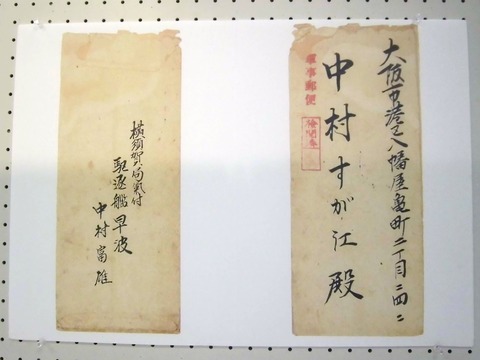 大阪市港区八幡屋亀町二丁目二四二
中村すが江殿
軍事郵便
検閲済
横須賀局気付
駆逐艦早波
中村富雄